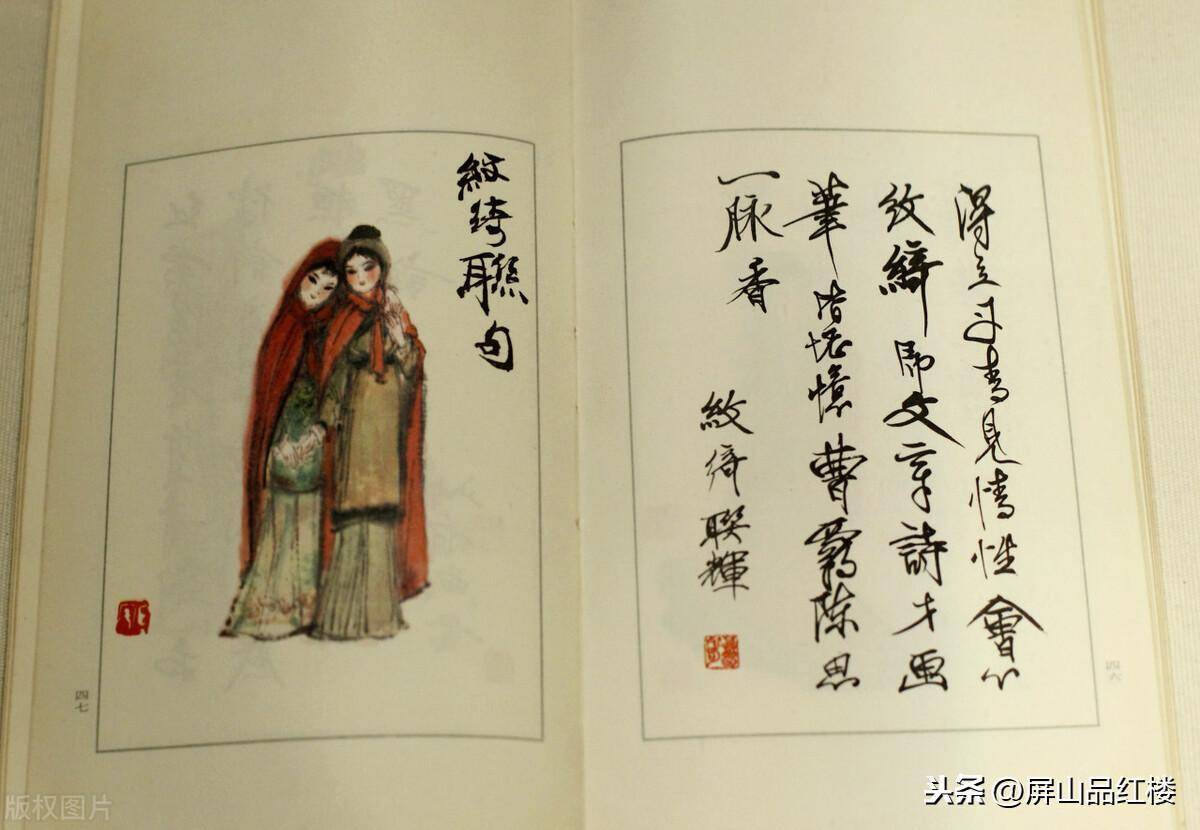 得之丹青見情性會心
紋綺即文章詩才画
筆皆堪憶曹霸陳思
一脉香
紋綺聯輝
四六
紋綺聯句
四七
版权图片
头条@屏山品红楼